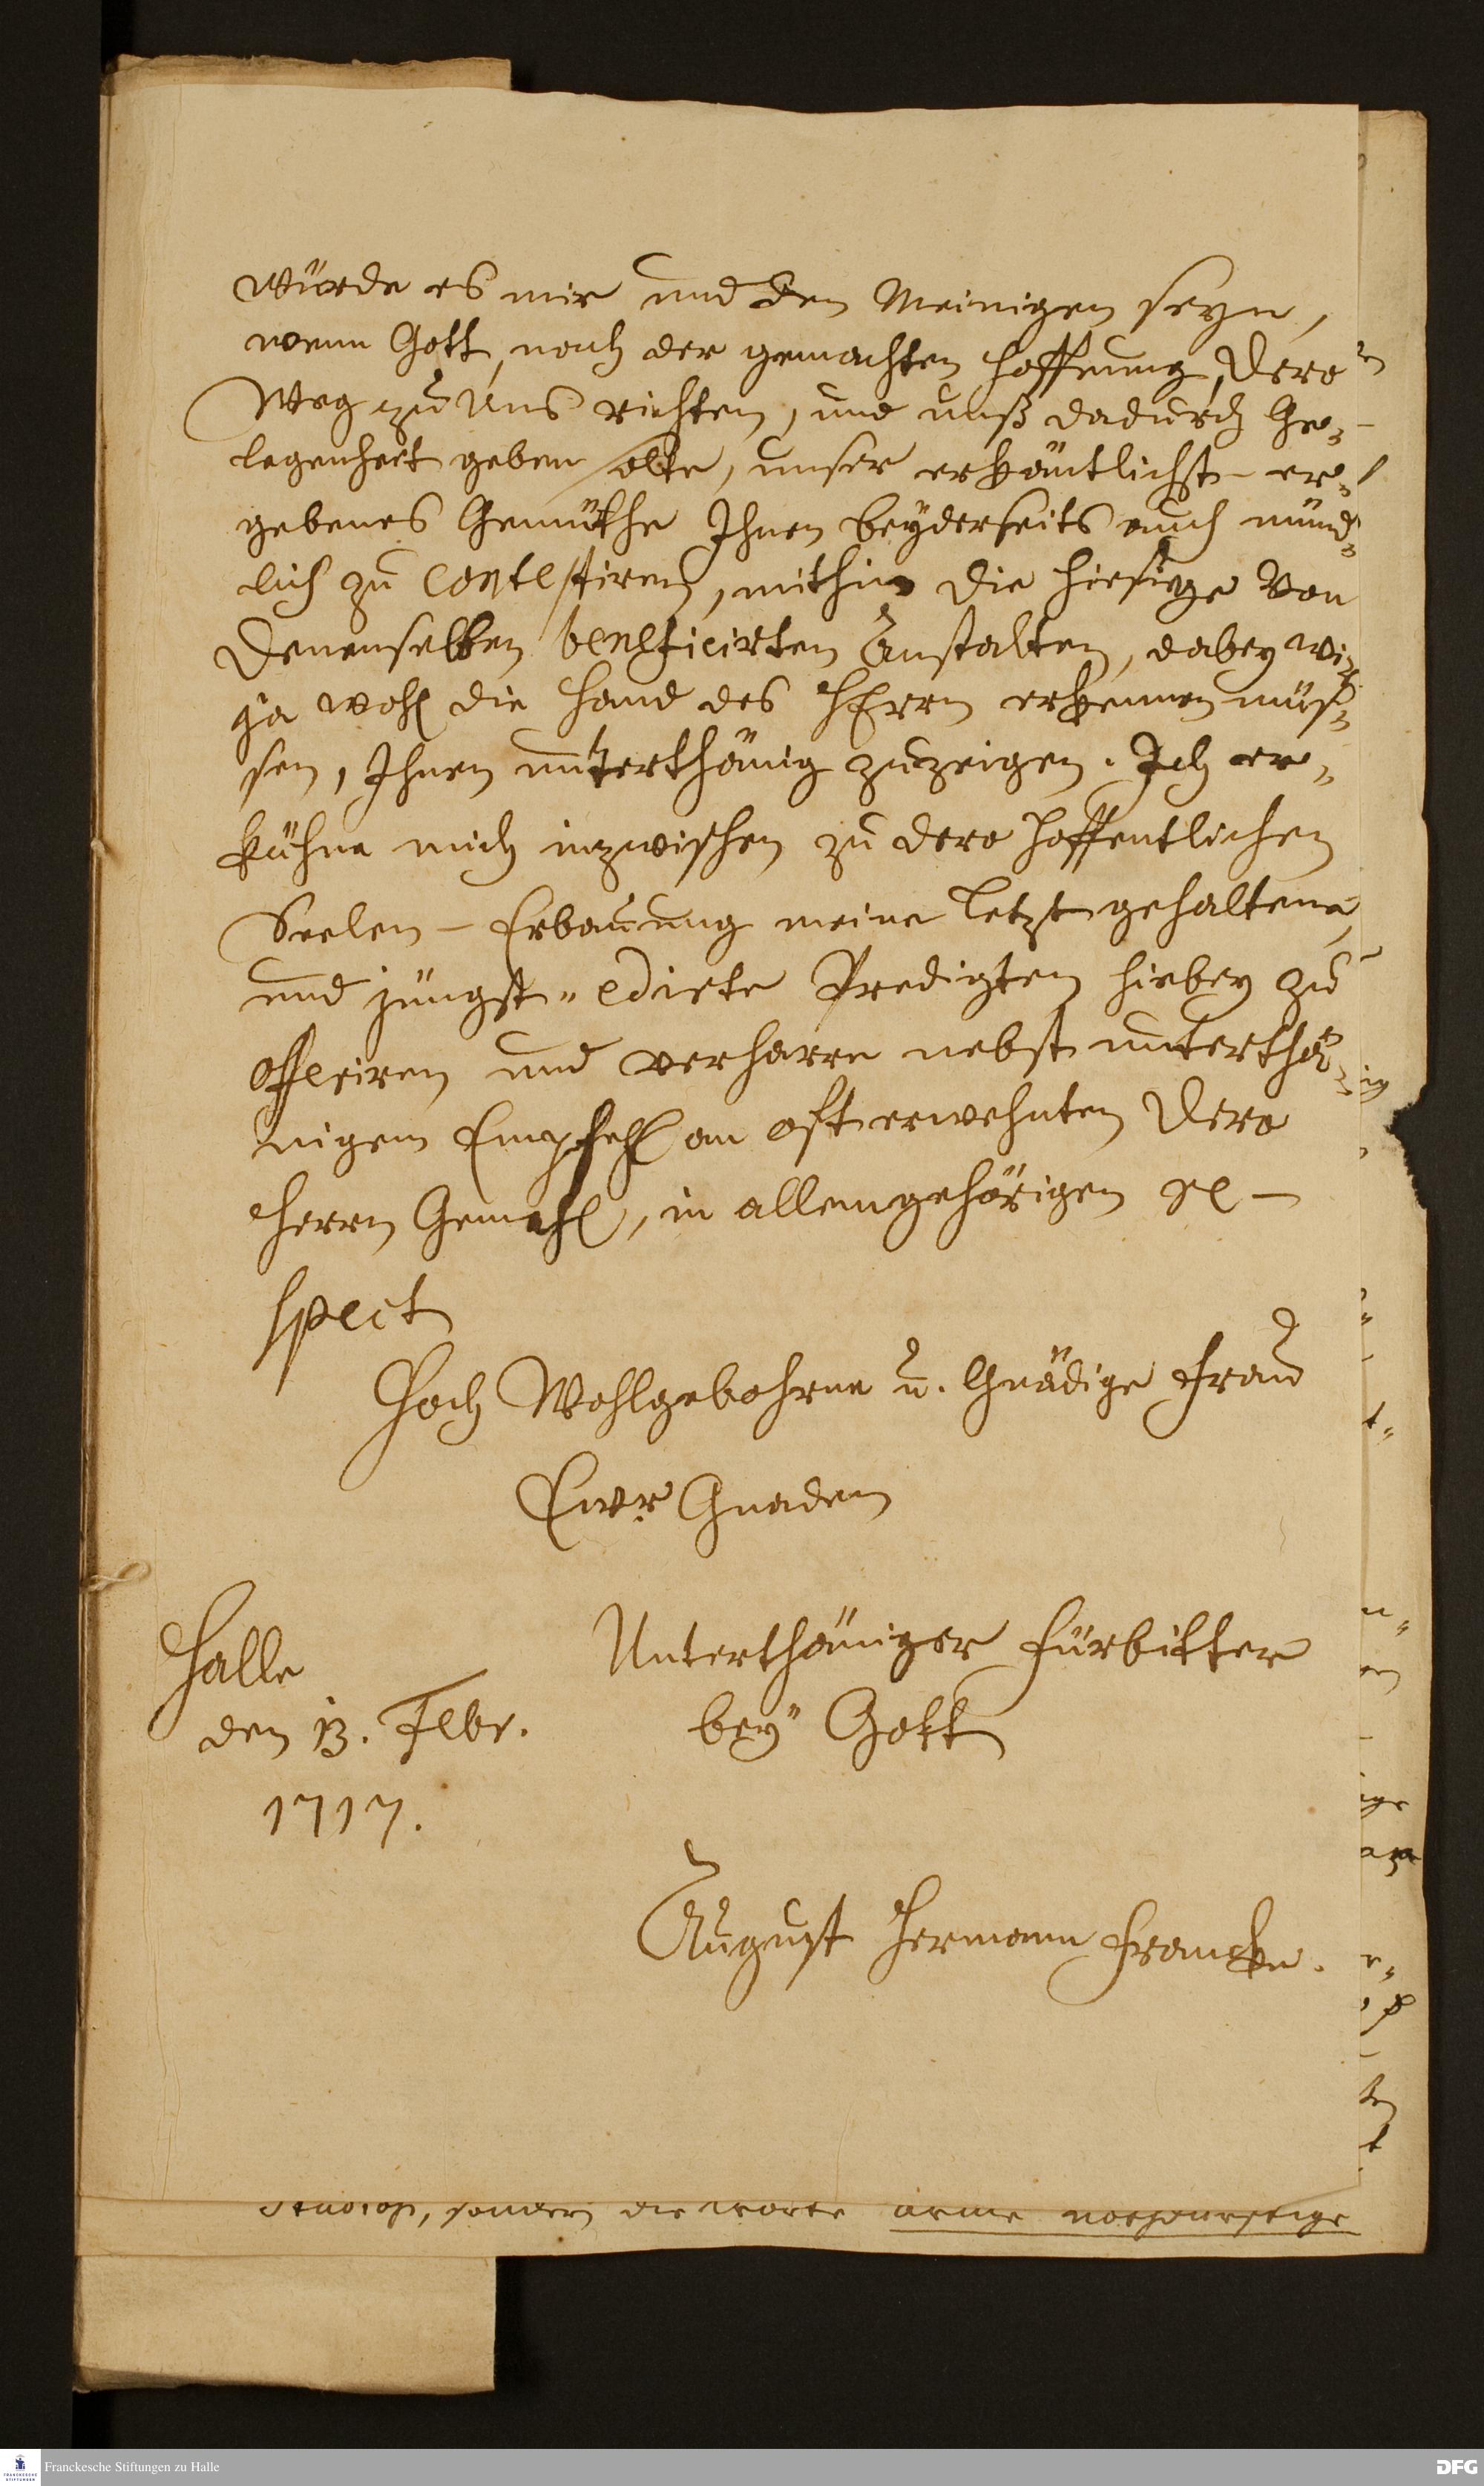 würde es mir und den Meinigen seyn,
wenn Gott, nach der gemachten Hoffnung, Dero
Weg zu Uns richten, und unß dadurch Ge-
legenheit geben solte, unser erkäntlichst-er-
gebenes Gemüthe Ihnen beyderseits auch münd-
lich zu contestiren, mithin die hiesige von
Denenselben beneficirten Anstalten, dabey wir
ja wohl die Hand des HErrn erkennen müs-
sen, Ihnen unterthänig zuzeigen. Ich er-
kühne mich inzwischen zu dero hoffentlichen
Seelen-Erbauung meine letzt gehaltene,
und jüngst-edirte Predigten hiebey zu
offeriren und verharre nebst unterthä-
nigem Empfehl an oft erwehnten Dero
Herrn Gemahl, in allem gehörigen Re-
spect
Hoch Wohlgebohrne u. Gnädige Frau
Ewr Gnaden
Unterthäniger Fürbitter
bey Gott
Halle
den 13. Febr.
1717.
August Hermann Francke.
Studiosi, sondern die Worte arme nothdürftige
Franckesche Stiftungen zu Halle
DFG